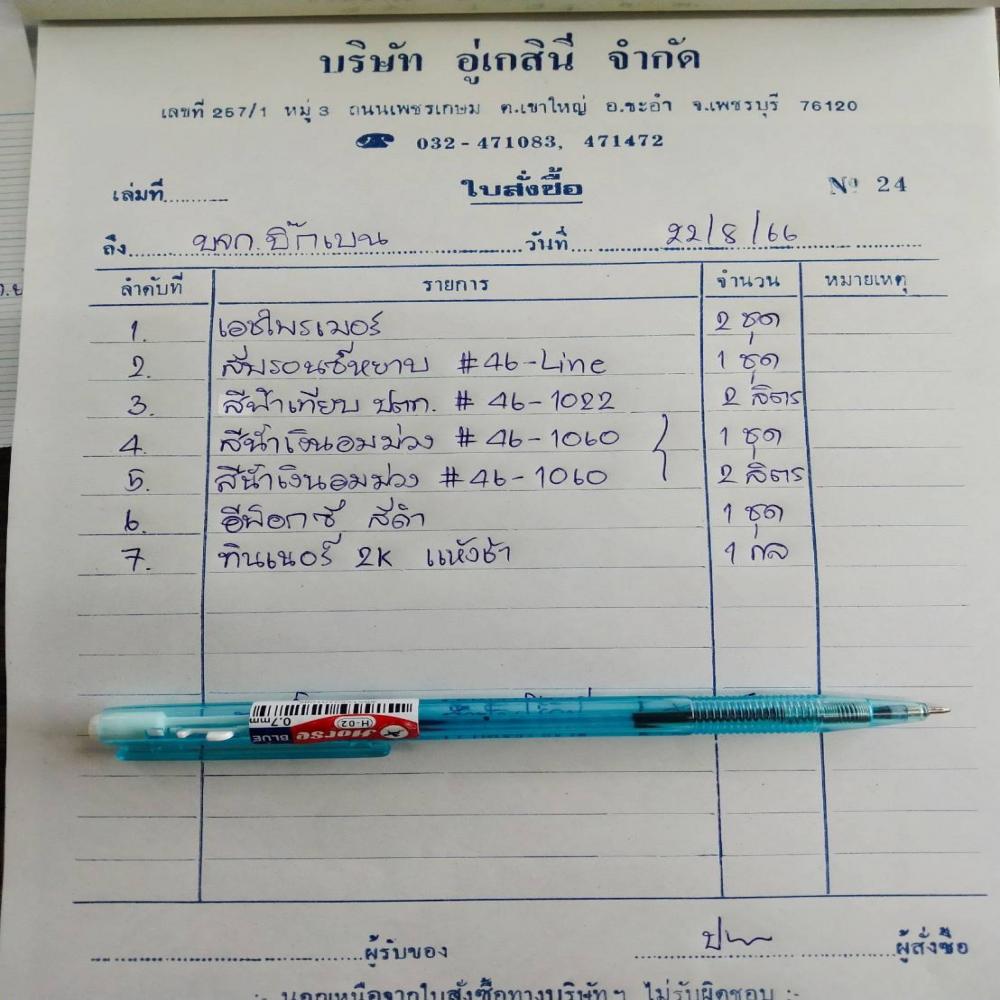 บริษัท อู่เกสินี จำกัด
เลขที่ 257/1 หมู่ 3 ถนนเพชรเกษม ต.เขาใหญ่ อ.ชะอำ จ.เพชรบุรี 76120
☎ 032-471083, 471472
เล่มที่.......... ใบสั่งซื้อ Nº 24
ถึง บจก.บิ๊กเบน วันที่ 22/8/66
ลำดับที่ รายการ จำนวน หมายเหตุ
1. เอชไพรเมอร์ 2 ชุด
2. สีบรอนซ์หยาบ #46-Line 1 ชุด
3. สีฟ้าเทียบ ปตท. #46-1022 2 ลิตร
4. สีน้ำเงินอมม่วง #46-1060 1 ชุด
5. สีน้ำเงินอมม่วง #46-1060 2 ลิตร
6. อีพ็อกซี่ สีดำ 1 ชุด
7. ทินเนอร์ 2K แห้งช้า 1 กล
0.7mm H-02 Horse BLUE
ผู้รับของ ผู้สั่งซื้อ
:- นอกเหนือจากใบสั่งซื้อทางบริษัทฯ ไม่รับผิดชอบ -: